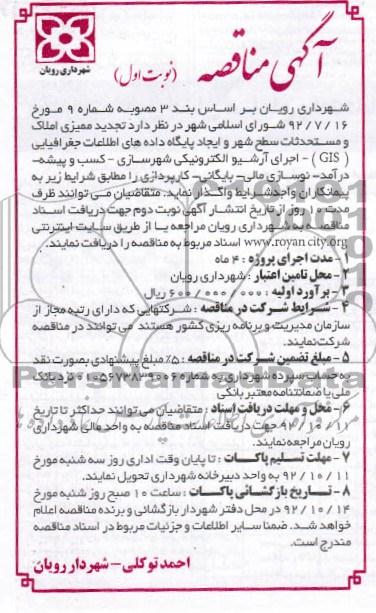 آگهی مناقصه (نوبت اول)
شهرداری رویان
شهرداری رویان بر اساس بند ۳ مصوبه شماره ۹ مورخ
۹۲/۷/۱۶ شورای اسلامی شهر در نظر دارد تجدید ممیزی املاک
و مستحدثات سطح شهر و ایجاد پایگاه داده های اطلاعات جغرافیایی
( GIS ) - اجرای آرشیو الکترونیکی شهرسازی - کسب و پیشه-
درآمد- نوسازی مالی- بایگانی- کارپردازی را مطابق شرایط زیر به
پیمانکاران واجدشرایط واگذار نماید. متقاضیان می توانند ظرف
مدت ۱۰ روز از تاریخ انتشار آگهی نوبت دوم جهت دریافت اسناد
مناقصه به شهرداری رویان مراجعه یا از طریق سایت اینترنتی
www.royan city.org اسناد مربوط به مناقصه را دریافت نمایند.
۱ - مدت اجرای پروژه : ۴ ماه
۲ - محل تامین اعتبار : شهرداری رویان
۳ - برآورد اولیه : ۶۰۰/۰۰۰/۰۰۰ ریال
۴ - شرایط شرکت در مناقصه : شرکتهایی که دارای رتبه مجاز از
سازمان مدیریت و برنامه ریزی کشور هستند می توانند در مناقصه
شرکت نمایند.
۵ - مبلغ تضمین شرکت در مناقصه : ۵٪ مبلغ پیشنهادی بصورت نقد
به حساب سپرده شهرداری به شماره نزد بانک
ملی یا ضمانتنامه معتبر بانکی
۶ - محل و مهلت دریافت اسناد : متقاضیان می توانند حداکثر تا تاریخ
۹۲/۱۰/۱۱ جهت دریافت اسناد مناقصه به واحد مالی شهرداری
رویان مراجعه نمایند.
۷ - مهلت تسلیم پاکات : تا پایان وقت اداری روز سه شنبه مورخ
۹۲/۱۰/۱۱ به واحد دبیرخانه شهرداری تحویل نمایند.
۸ - تاریخ بازگشائی پاکات : ساعت ۱۰ صبح روز شنبه مورخ
۹۲/۱۰/۱۴ در محل دفتر شهردار بازگشائی و برنده مناقصه اعلام
خواهد شد. ضمنا سایر اطلاعات و جزئیات مربوط در اسناد مناقصه
مندرج است.
احمد توکلی - شهردار رویان